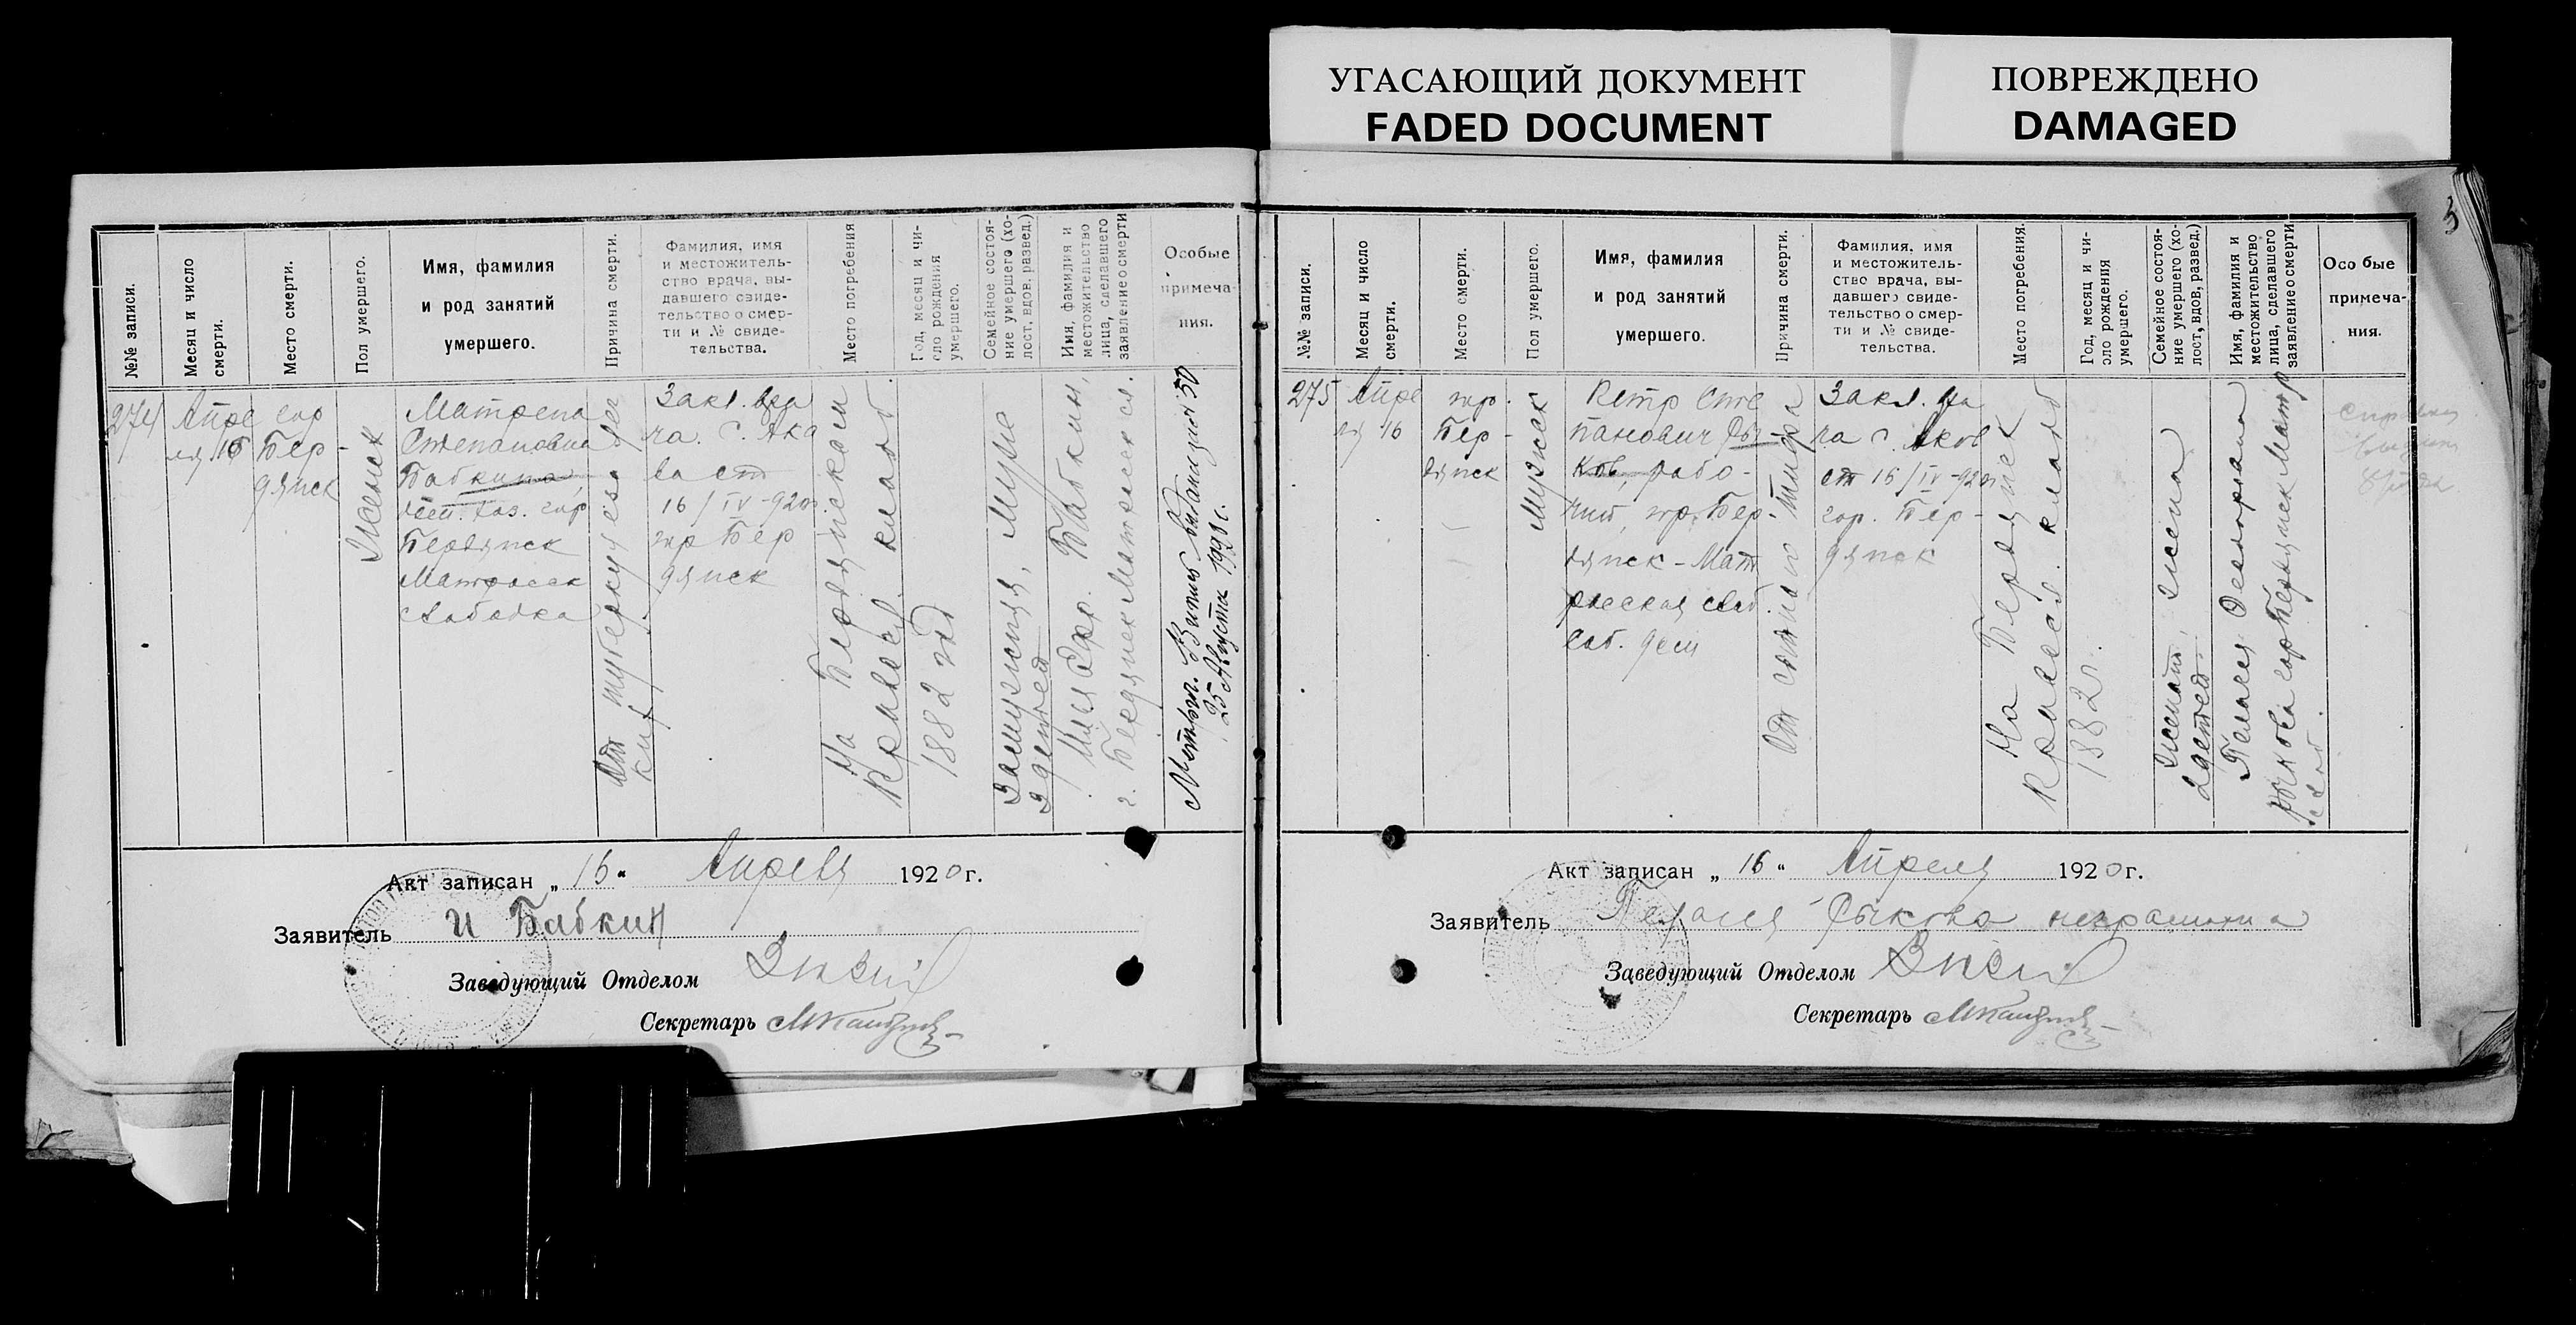 УГАСАЮЩИЙ ДОКУМЕНТ
FADED DOCUMENT
ПОВРЕЖДЕНО
DAMAGED
№№ записи.
Месяц и число
смерти.
Место смерти.
Пол умершего.
Имя, фамилия
и род занятий
умершего.
Причина смерти.
Фамилия, имя
и местожитель-
ство врача, вы-
давшего свиде-
тельство о смер-
ти и № свиде-
тельства.
Место погребения
Год, месяц и чи-
сло рождения
умершего.
Семейное состоя-
ние умершего (хо-
лост, вдов. развед.)
Имя, фамилия и
местожительство
лица, сделавшего
заявление о смерти
Особые
примеча-
ния.
274
Апре
ля 16
гор
Бер-
дянск
Женск
Матрена
Степановна
Бабкина
гор
Бердянск
Матросск
слабодка
От туберкулеза лег
ких
Закл. вра
ча. С. Ака
ва от
16/IV-920г.
гор Бер
дянск
На Бердянском
Кримеск. клад.
1882 год
Замужняя, Муже
2 детей
Бабкин,
г. Бердянск Матросск сл.
25 Августа 1928 г.
Акт записан „ 16 “ Апреля 1920 г.
Заявитель И Бабкин
Заведующий Отделом
Секретарь
5
№№ записи.
Месяц и число
смерти.
Место смерти.
Пол умершего.
Имя, фамилия
и род занятий
умершего.
Причина смерти.
Фамилия, имя
и местожитель-
ство врача, вы-
давшего свиде-
тельство о смер-
ти и № свиде-
тельства.
Место погребения.
Год, месяц и чи-
сло рождения
умершего.
Семейное состоя-
ние умершего (хо-
лост, вдов, развед.)
Имя, фамилия и
местожительство
лица, сделавшего
заявление о смерти
Особые
примеча-
ния.
275
Апре
ля 16
гор.
Бер-
дянск
Мужск
Петр Сте
панович Рыч-
ков, рабо-
чий, гор. Бер-
дянск - Мат
росская слаб.
От сыпного тифа
Закл. вра
ча С. Аков
от 16/IV-920г
гор. Бер-
дянск
На Бердянск
клад
1882 г.
Женат, жена
2 детей
Пелагея
гор Бердянск Матр
слаб.
Акт записан „ 16 “ Апреля 1920 г.
Заявитель Пелагея Рычкова неграмотна
Заведующий Отделом
Секретарь